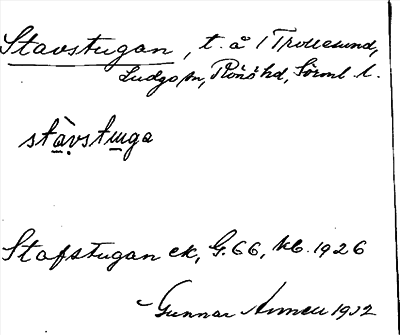 Stavstugan, t. å / Trollesund,
Ludgo sn, Rönö hd, Sörml. l.
stàvstuga
Stafstugan ek, G.66, kb. 1926
Gunnar 1932